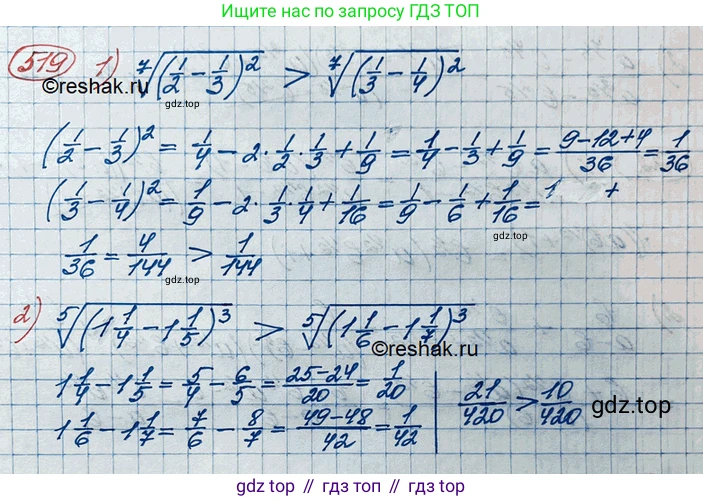 Ищите нас по запросу ГДЗ ТОП
519 1) ⁷√((1/2 − 1/3)²) > ⁷√((1/3 − 1/4)²)
©reshak.ru
gdz.top
(1/2 − 1/3)² = 1/4 − 2·1/2·1/3 + 1/9 = 1/4 − 1/3 + 1/9 = (9−12+4)/36 = 1/36
(1/3 − 1/4)² = 1/9 − 2·1/3·1/4 + 1/16 = 1/9 − 1/6 + 1/16 =
©reshak.ru
gdz.top
1/36 = 4/144 > 1/144
gdz.top
2) ⁵√((1 1/4 − 1 1/5)³) > ⁵√((1 1/6 − 1 1/7)³)
©reshak.ru
1 1/4 − 1 1/5 = 5/4 − 6/5 = (25−24)/20 = 1/20
1 1/6 − 1 1/7 = 7/6 − 8/7 = (49−48)/42 = 1/42
21/420 > 10/420
gdz.top
gdz top // гдз топ // gdz.top